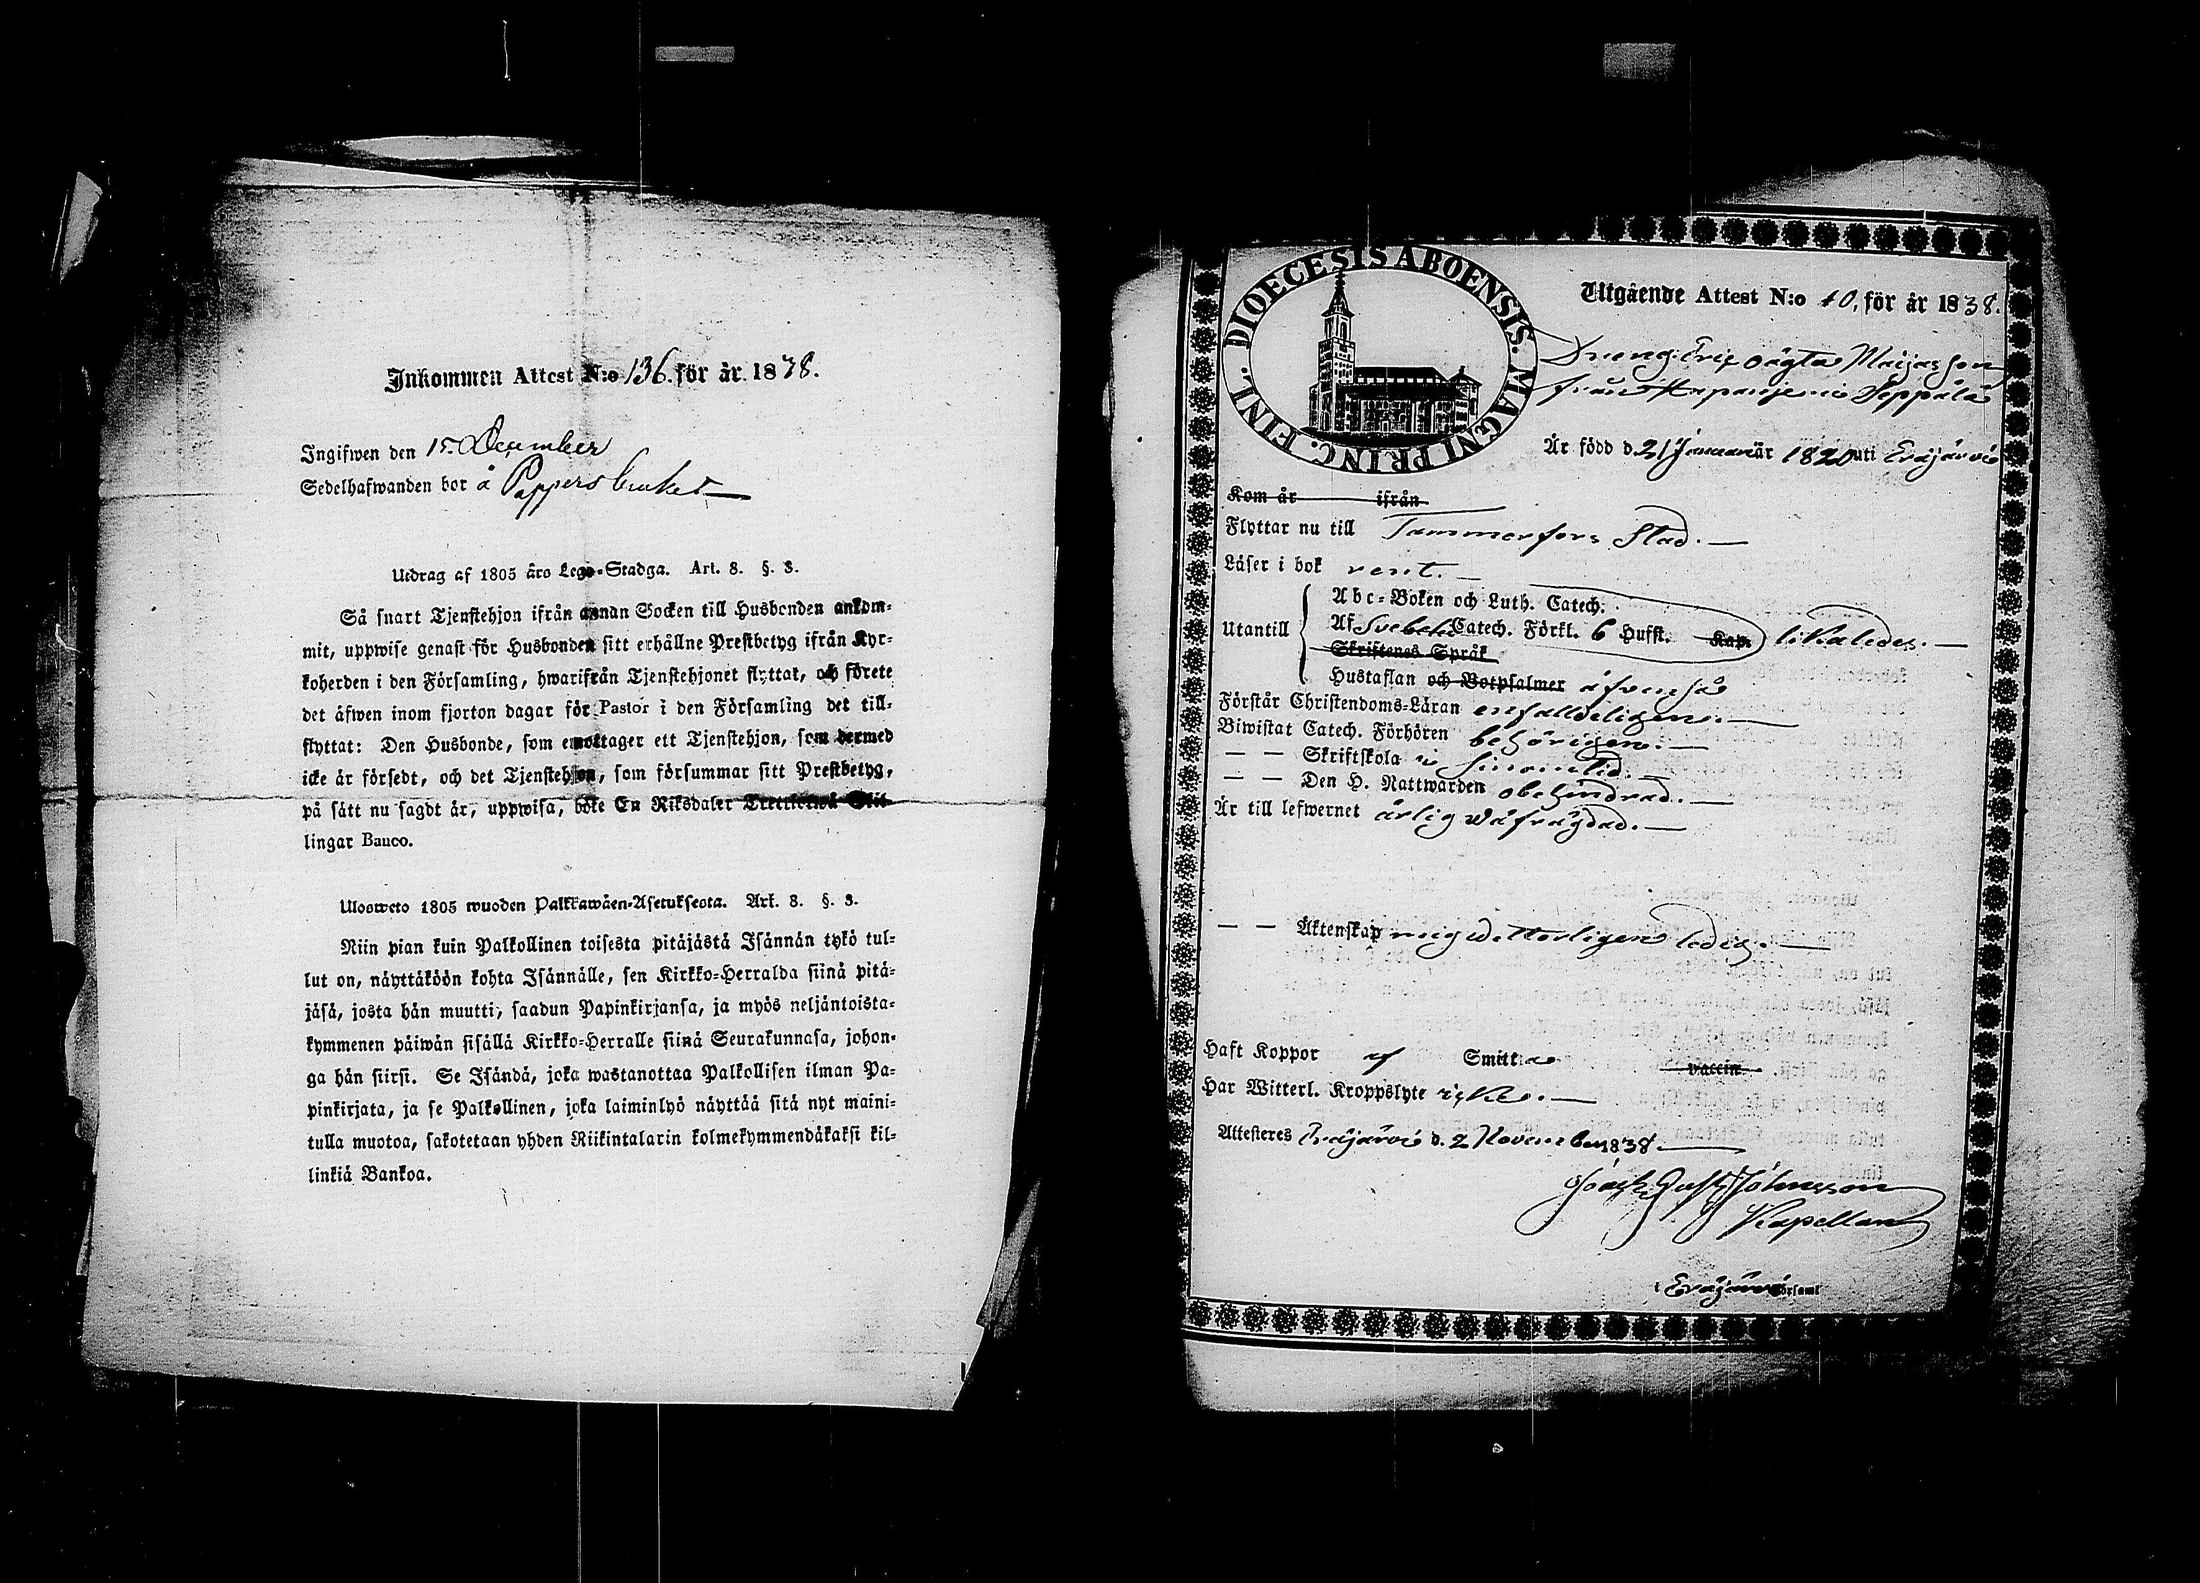 Inkommen Attest N:o 136. för år 1838.
Ingifwen den 15. December
Sedelhafwanden bor å Pappersbruket
Utdrag af 1805 års Lego-Stadga. Art. 8. §. 3.
Så snart Tjenstehjon ifrån annan Socken till Husbonden ankom-
mit, uppwise genast för Husbonden sitt erhållne Prestbetyg ifrån Kyr-
koherden i den Församling, hwarifrån Tjenstehjonet flyttat, och förete
det äfwen inom fjorton dagar för Pastor i den Församling det till-
flyttat: Den Husbonde, som emottager ett Tjenstehjon, som dermed
icke är försedt, och det Tjenstehjon, som försummar sitt Prestbetyg,
på sätt nu sagdt är, uppwisa, böte En Riksdaler Trettiotwå Skil-
lingar Banco.
Ulosweto 1805 wuoden Palkkawäen-Asetuksesta. Art. 8. §. 3.
Niin pian kuin Palkollinen toisesta pitäjästä Isännän tykö tul-
lut on, näyttäköön kohta Isännälle, sen Kirkko-Herralda siinä pitä-
jäsä, josta hän muutti, saadun Papinkirjansa, ja myös neljäntoista-
kymmenen päiwän sisällä Kirkko-Herralle siinä Seurakunnasa, johon-
ga hän siirsi. Se Isändä, joka wastanottaa Palkollisen ilman Pa-
pinkirjata, ja se Palkollinen, joka laiminlyö näyttää sitä nyt maini-
tulla muotoa, sakotetaan yhden Riikintalarin kolmekymmendäkaksi kil-
linkiä Bankoa.
DIOECESIS ABOENSIS. MAGNI PRINC. FINL.
Utgående Attest N:o 40, för år 1838.
Dreng. Eric oägta Maijasson
från Haapaniemi Seppälä
Är född d. 21 Januari är 1820 uti Eräjärvi
Kom år ifrån
Flyttar nu till Tammerfors Stad.
Läser i bok rent.
Utantill
Abc-Boken och Luth. Catech.
Af Svebeli Catech. Förkl. 6 Hufst. Kap. likaledes.
Skriftenes Språk
Hustaflan och Botpsalmer äfvenså
Förstår Christendoms-Läran enfalldeligen.
Biwistat Catech. Förhören behörigen.
— — Skriftskola i sinom tid.
— — Den H. Nattwarden obehindrad.
Är till lefwernet ärlig wäfrägdad.
— — Äktenskap mig wetterligen ledig.
Haft Koppor af Smitta vaccin
Har Witterl. Kroppslyte icke.
Attesteres Eräjärvi d. 2 November 1838.
Gust. Johnsson
Kapellan
i Eräjärvi Församl